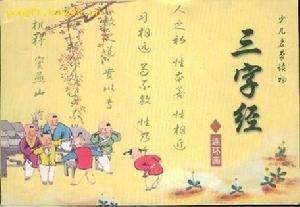 少儿启蒙读物
三字经
连环画
人之初 性本善 性相近
习相远 苟不教 性乃
教之道 贵以专
机杼 窦燕山